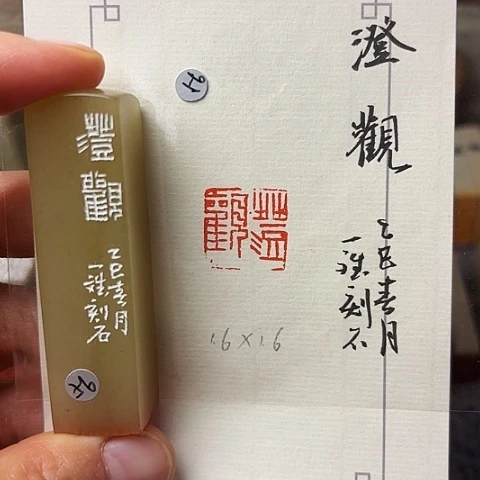 澄觀
乙巳春月
一雅刻石
澄觀
1.6×1.6
澄觀
乙巳春月
一雅刻石